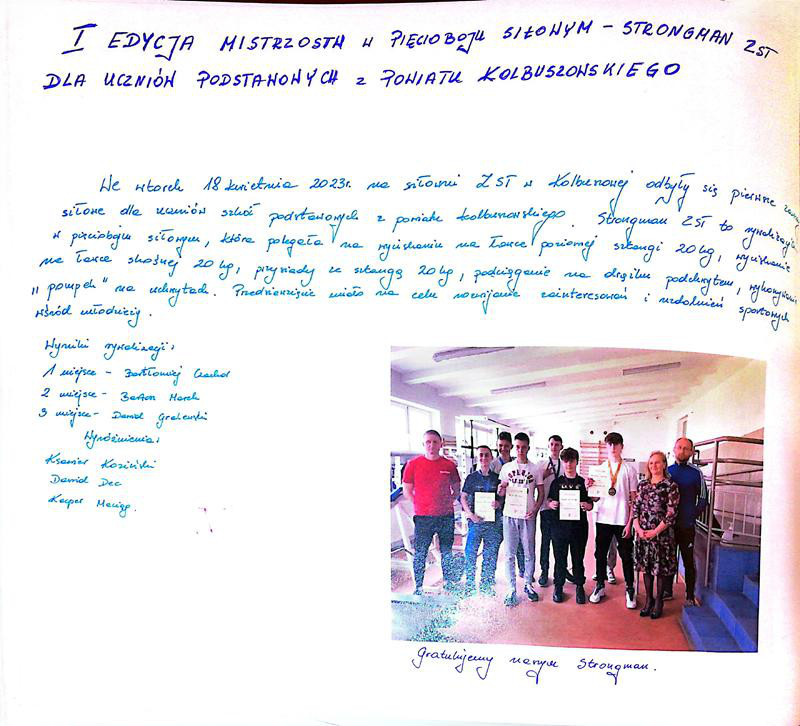 I EDYCJA MISTRZOSTW W PIĘCIOBOJU SIŁOWYM - STRONGMAN ZST
DLA UCZNIÓW PODSTAWOWYCH Z POWIATU KOLBUSZOWSKIEGO
We wtorek 18 kwietnia 2023r. na siłowni ZST w Kolbuszowej odbyły się pierwsze
siłowe dla uczniów szkół podstawowych z powiatu kolbuszowskiego. Strongman ZST to rywalizacja
w pięcioboju siłowym, która polegała na wyciskaniu na ławce poziomej sztangi 20 kg, wyciskanie
na ławce skośnej 20 kg, przysiady ze sztangą 20 kg, podciąganie na drążku podchwytem, wykonywanie
"pompek" na uchwytach. Przedsięwzięcie miało na celu rozwijanie zainteresowań i uzdolnień sportowych
wśród młodzieży.
Wyniki rywalizacji:
1 miejsce - Bartłomiej
2 miejsce - Bartosz Marek
3 miejsce - Dawid Grabowski
Wyróżnienia:
Ksawier Koziński
Dawid Dec
Kacper
Gratulujemy naszym Strongman.